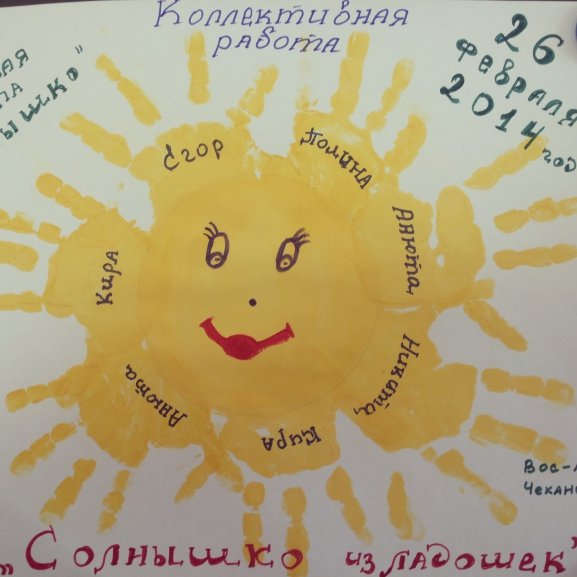 Коллективная
работа
26
февраля
2014 год
Егор
Полина
Анюта
Никита
Кира
Анюта
Кира
„Солнышко из ладошек"